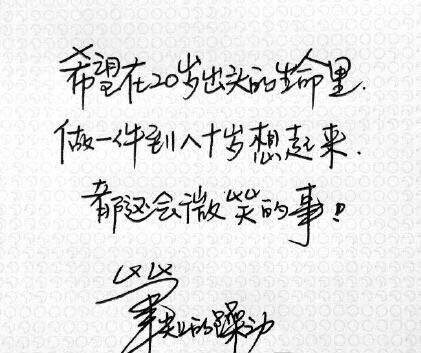 希望在20岁出头的生命里.
做一件到八十岁想起来.
都还会微笑的事!
的躁动